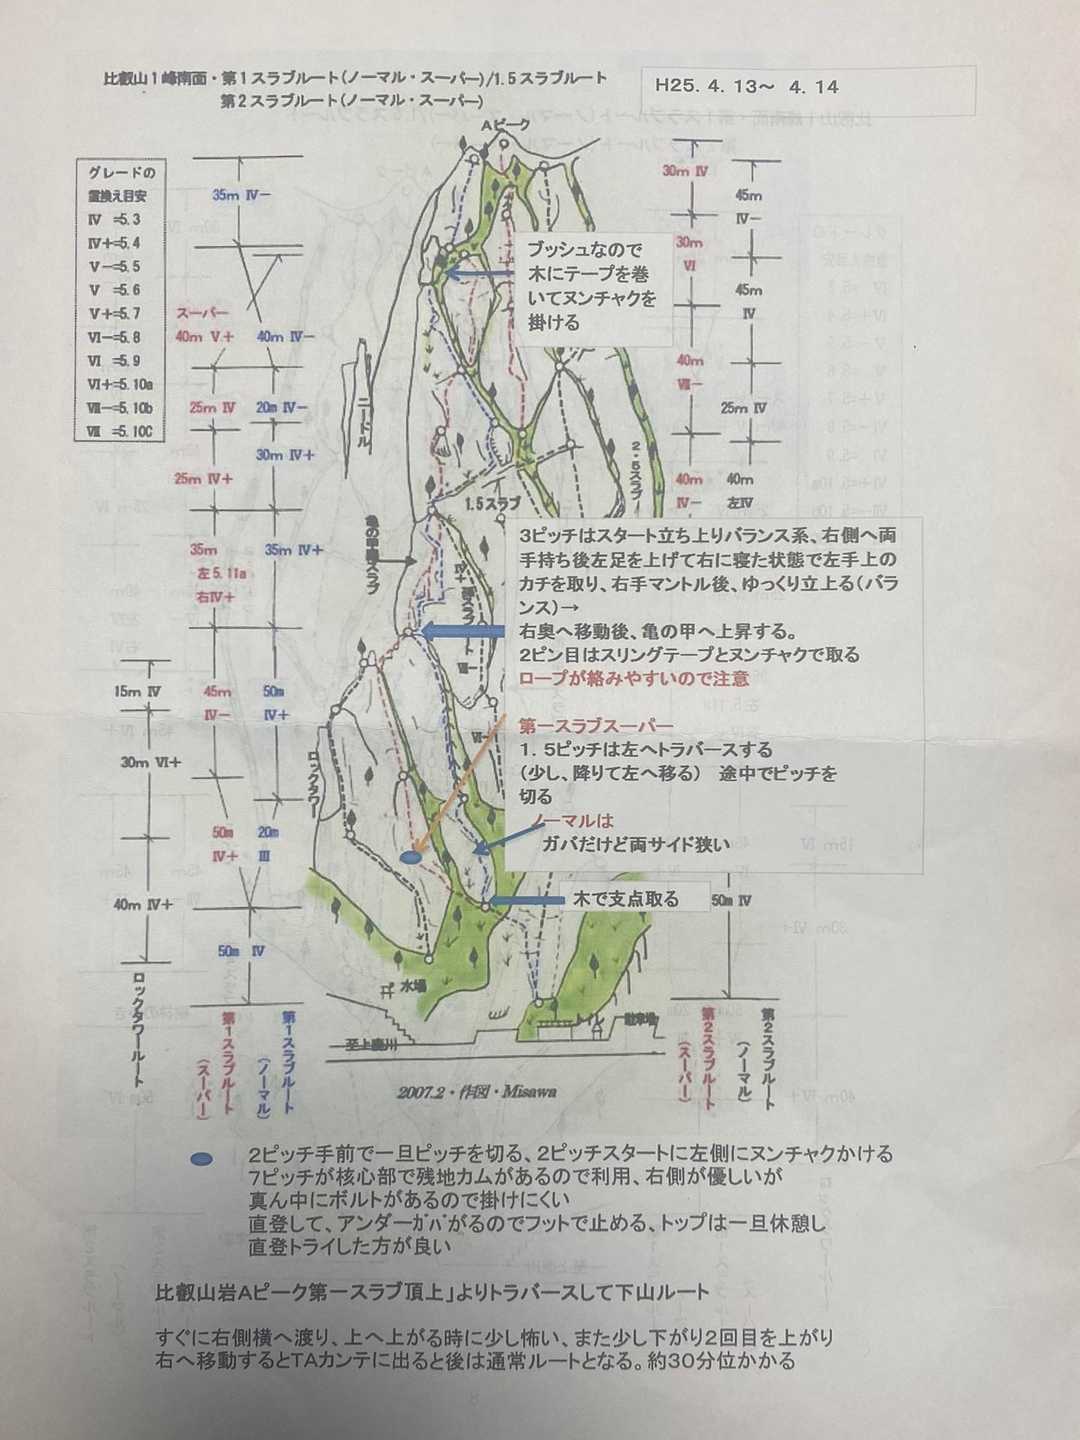 比叡山１峰南面・第１スラブルート(ノーマル・スーパー)/1.5スラブルート
第２スラブルート(ノーマル・スーパー)
H25. 4. 13～ 4. 14
Aピーク
グレードの
置換え目安
Ⅳ =5.3
Ⅳ+=5.4
Ⅴ-=5.5
Ⅴ =5.6
Ⅴ+=5.7
Ⅵ-=5.8
Ⅵ =5.9
Ⅵ+=5.10a
Ⅶ-=5.10b
Ⅶ =5.10C
35m Ⅳ-
スーパー
40m Ⅴ+
40m Ⅳ-
25m Ⅳ
20m Ⅳ-
30m Ⅳ+
25m Ⅳ+
35m
左5.11a
右Ⅳ+
35m Ⅳ+
15m Ⅳ
45m
Ⅳ-
50m
Ⅳ+
30m Ⅵ+
50m
Ⅳ+
20m
Ⅲ
40m Ⅳ+
50m Ⅳ
ロックタワールート
第１スラブルート
(スーパー)
第１スラブルート
(ノーマル)
30m Ⅳ
45m
Ⅳ-
30m
Ⅵ
45m
Ⅳ
40m
Ⅶ-
25m Ⅳ
40m
Ⅳ-
40m
左Ⅳ
50m Ⅳ
第２スラブルート
(スーパー)
第２スラブルート
(ノーマル)
ブッシュなので
木にテープを巻
いてヌンチャクを
掛ける
ニードル
2.5スラブ
1.5スラブ
亀の甲スラブ
Ⅳ+
Ⅶ-
Ⅵ-
ロックタワー
3ピッチはスタート立ち上りバランス系、右側へ両
手持ち後左足を上げて右に寝た状態で左手上の
カチを取り、右手マントル後、ゆっくり立上る(バラ
ンス)→
右奥へ移動後、亀の甲へ上昇する。
2ピン目はスリングテープとヌンチャクで取る
ロープが絡みやすいので注意
第一スラブスーパー
1．5ピッチは左へトラバースする
(少し、降りて左へ移る) 途中でピッチを
切る
ノーマルは
ガバだけど両サイド狭い
木で支点取る
水場
トイレ
駐車場
至上鹿川
2007.2・作図・Misawa
2ピッチ手前で一旦ピッチを切る、2ピッチスタートに左側にヌンチャクかける
7ピッチが核心部で残地カムがあるので利用、右側が優しいが
真ん中にボルトがあるので掛けにくい
直登して、アンダーガバがるのでフットで止める、トップは一旦休憩し
直登トライした方が良い
比叡山岩Aピーク第一スラブ頂上」よりトラバースして下山ルート
すぐに右側横へ渡り、上へ上がる時に少し怖い、また少し下がり2回目を上がり
右へ移動するとTAカンテに出ると後は通常ルートとなる。約30分位かかる